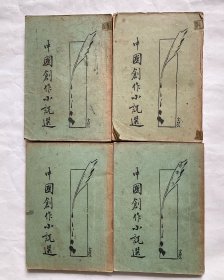 中國創作小說選
中國創作小說選
中國創作小說選
中國創作小說選